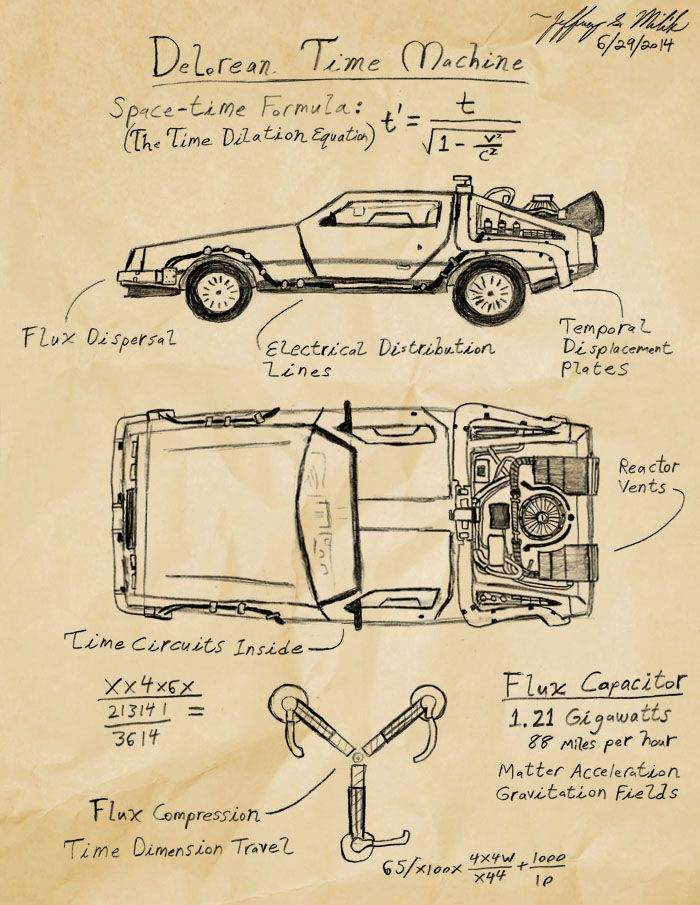 ~Jeffrey S. Milik
6/29/2014
Delorean Time Machine
Space-time Formula:
(The Time Dilation Equation)
t' = t / √(1 - v²/c²)
Flux Dispersal
Electrical Distribution
Lines
Temporal
Displacement
Plates
Reactor
Vents
Time Circuits Inside
XX4X6X
213141 =
3614
Flux Capacitor
1.21 Gigawatts
88 miles per hour
Matter Acceleration
Gravitation Fields
Flux Compression
Time Dimension Travel
65/x100x 4x4w/x44 + 1000/10